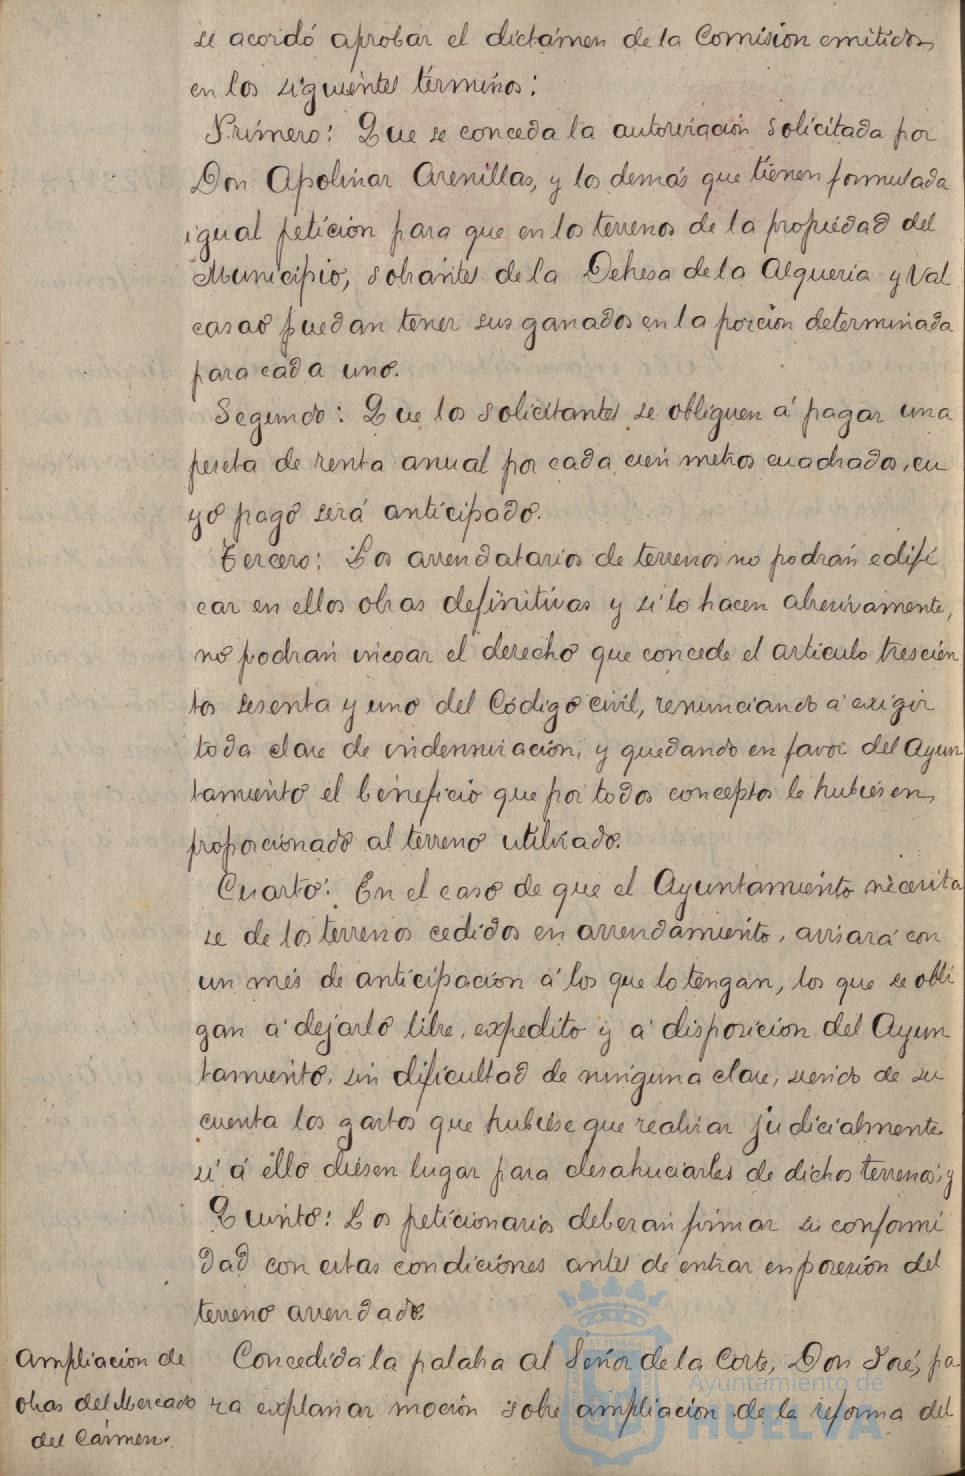 se acordó aprobar el dictámen de la Comision emitido
en los siguientes términos:
Primero: Que se conceda la autorización solicitada por
Don Apolinar Arenillas, y los demás que tienen formulada
igual petición para que en los terrenos de la propiedad del
Municipio, sobrantes de la Dehesa de la Alqueria y Val
casao puedan tener sus ganados en la porción determinada
para cada uno.
Segundo: Que los solicitantes se obliguen á pagar una
peseta de renta anual por cada cien metros cuadrados, cu
yo pago será anticipado.
Tercero: Los arrendatarios de terrenos no podrán edifi
car en ellos obras definitivas y si lo hacen abusivamente,
no podrán incoar el derecho que concede el articulo trescien
tos sesenta y uno del Código civil, renunciando á exigir
toda clase de indemnización, y quedando en favor del Ayun
tamiento el beneficio que por todos conceptos le hubiesen
proporcionado al terreno utilizado.
Cuarto: En el caso de que el Ayuntamiento necesita
se de los terrenos cedidos en arrendamiento, avisará con
un més de anticipación á los que lo tengan, los que se obli
gan á dejarlo libre, expedito y á disposición del Ayun
tamiento, sin dificultad de ninguna clase, siendo de su
cuenta los gastos que hubiese que realizar judicialmente
si á ello diesen lugar para desahuciarles de dichos terrenos; y
Quinto: Los peticionarios deberán firmar su conformi
dad con estas condiciones antes de entrar en posesión del
terreno arrendado.
Ampliación de
obras del Mercado
del Cármen.
Concedida la palabra al Señor de la Corte, Don José, pa
ra explanar moción sobre ampliación de la reforma del
Ayuntamiento de
HUELVA